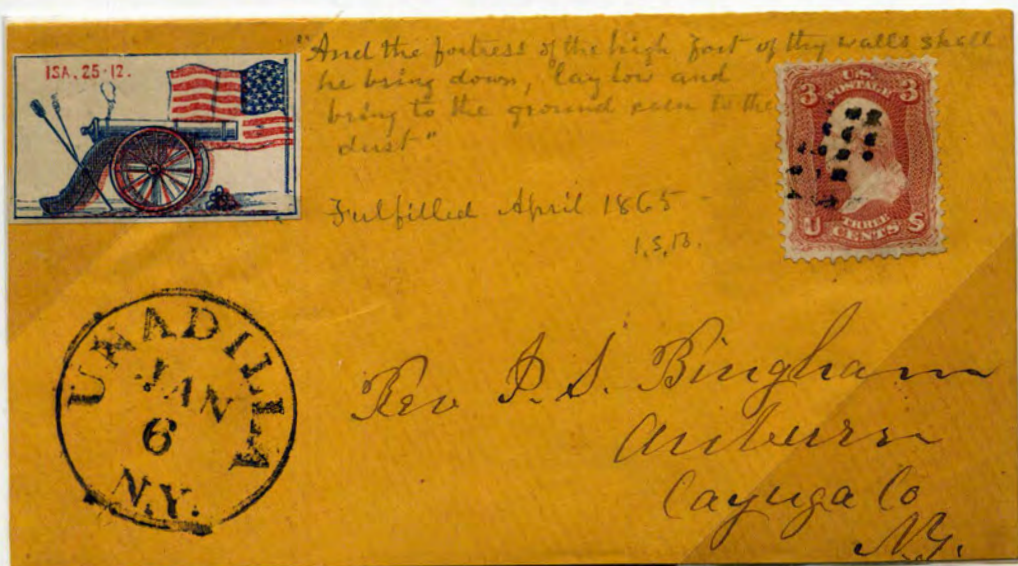 ISA. 25-12.
"And the fortress of the high fort of thy walls shall
he bring down, lay low and
bring to the ground even to the
dust"
Fulfilled April 1865 -
I.S.B.
U.S.
POSTAGE
3 3
THREE
CENTS
U S
UNADILLA
JAN
6
N.Y.
Rev I. S. Bingham
Auburn
Cayuga Co
N.Y.